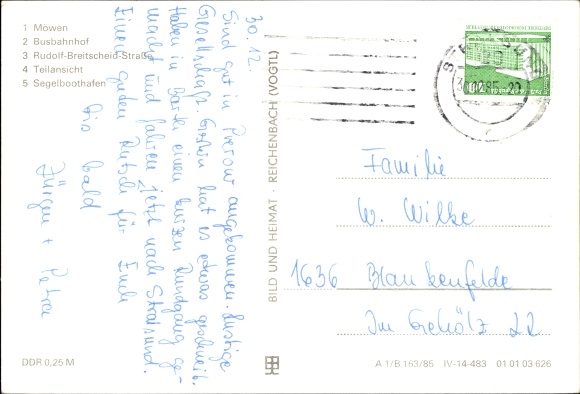 1 Möwen
2 Busbahnhof
3 Rudolf-Breitscheid-Straße
4 Teilansicht
5 Segelboothafen
30.12.
Sind gut in Prerow angekommen. Lustige
Gesellschaft. Gestern hat es etwas geschneit.
Haben in Barth einen kurzen Rundgang ge-
macht und fahren jetzt nach Stralsund.
Einen guten Rutsch für Euch
Bis bald
Jürgen + Petra
BILD UND HEIMAT · REICHENBACH (VOGTL)
Familie
W. Wilke
1636 Blankenfelde
Im Gehölz 22
DDR 0,25 M
A 1/B 163/85 IV-14-483 01 01 03 626